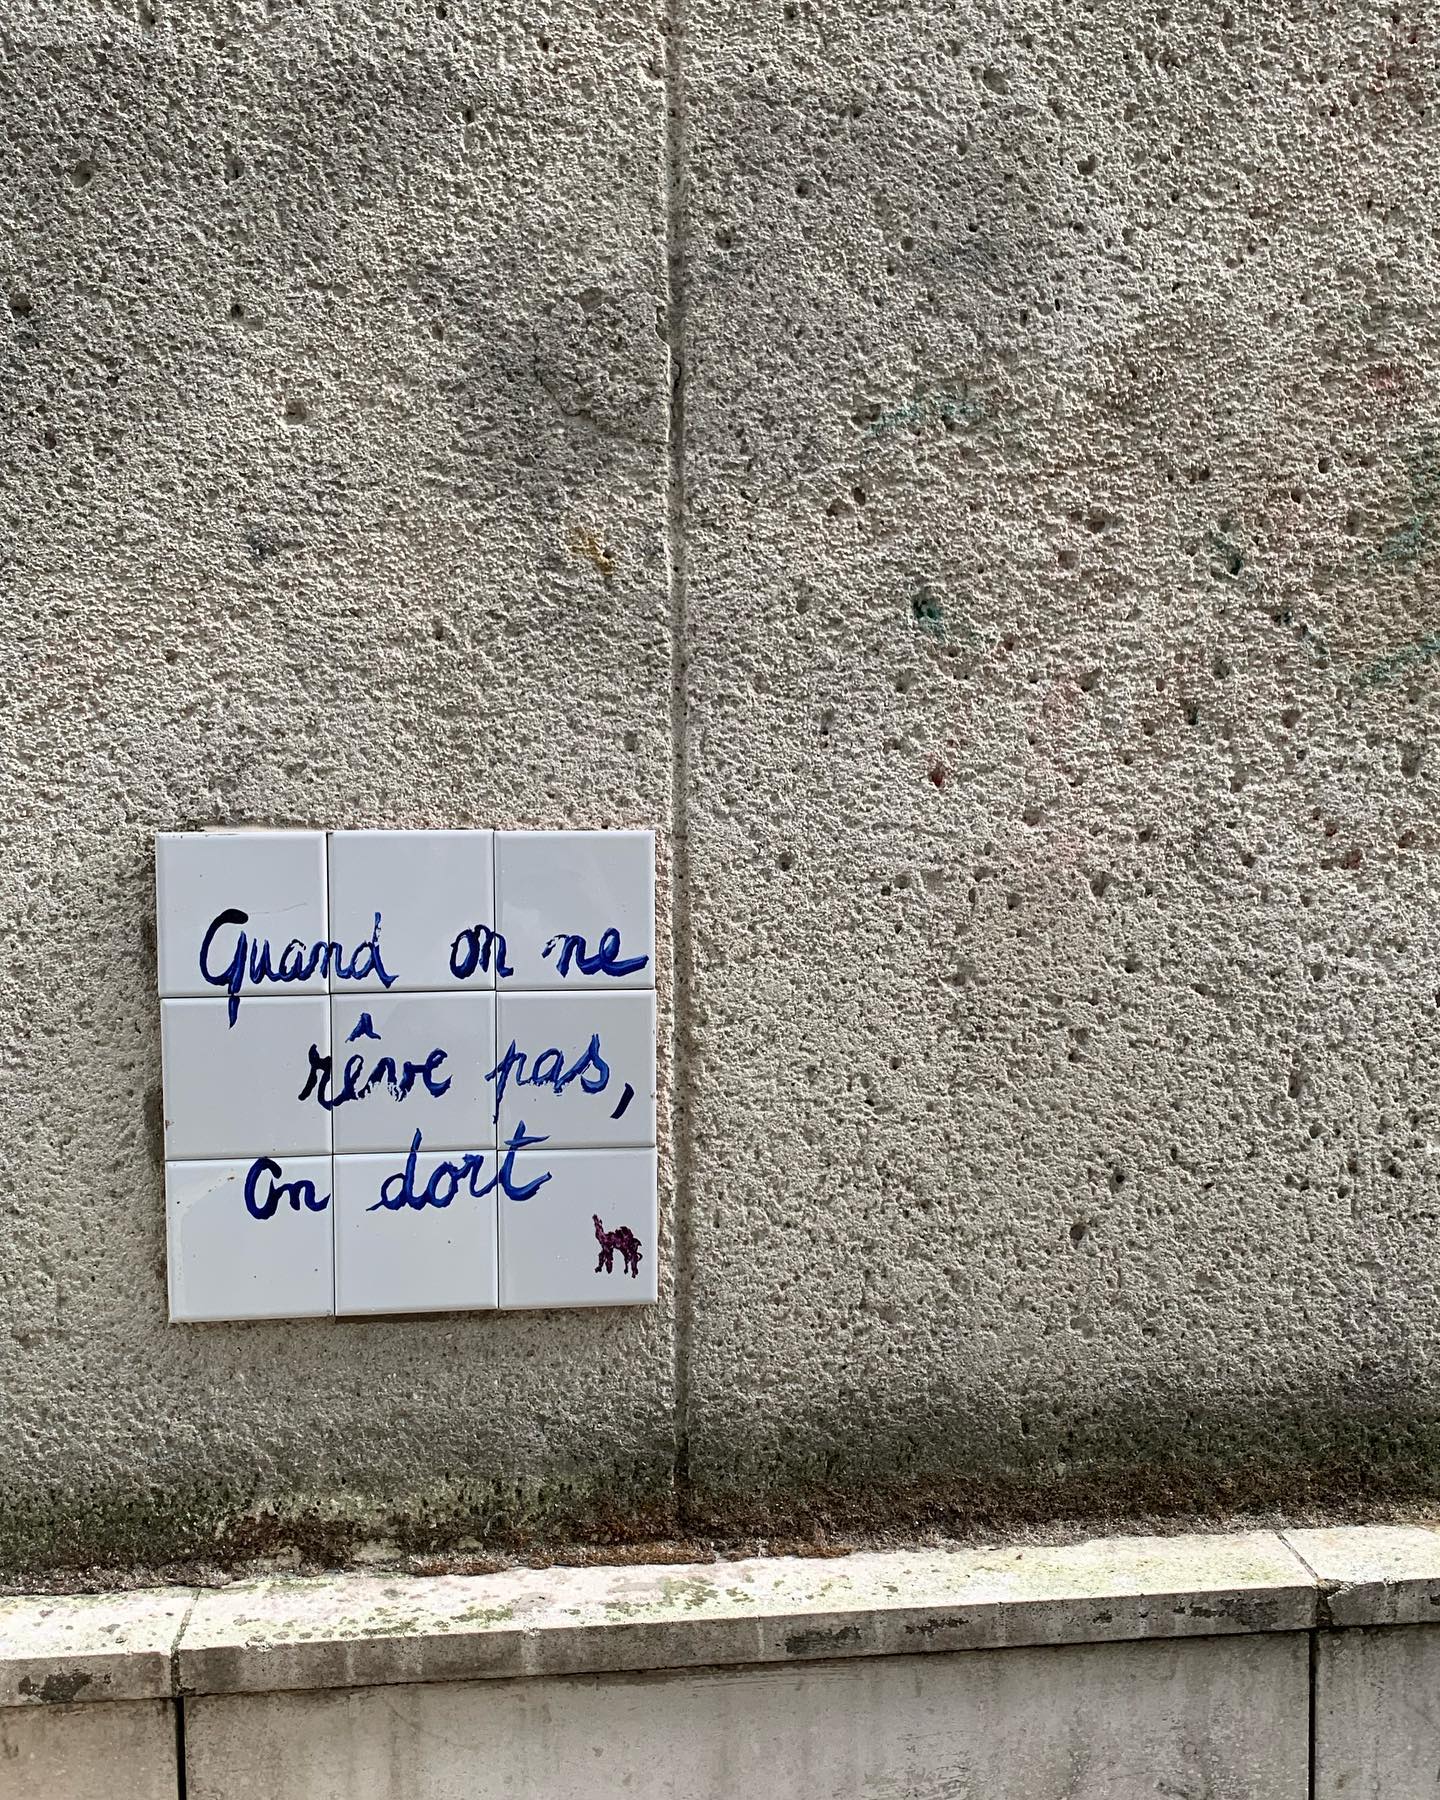 Quand on ne
rêve pas,
On dort